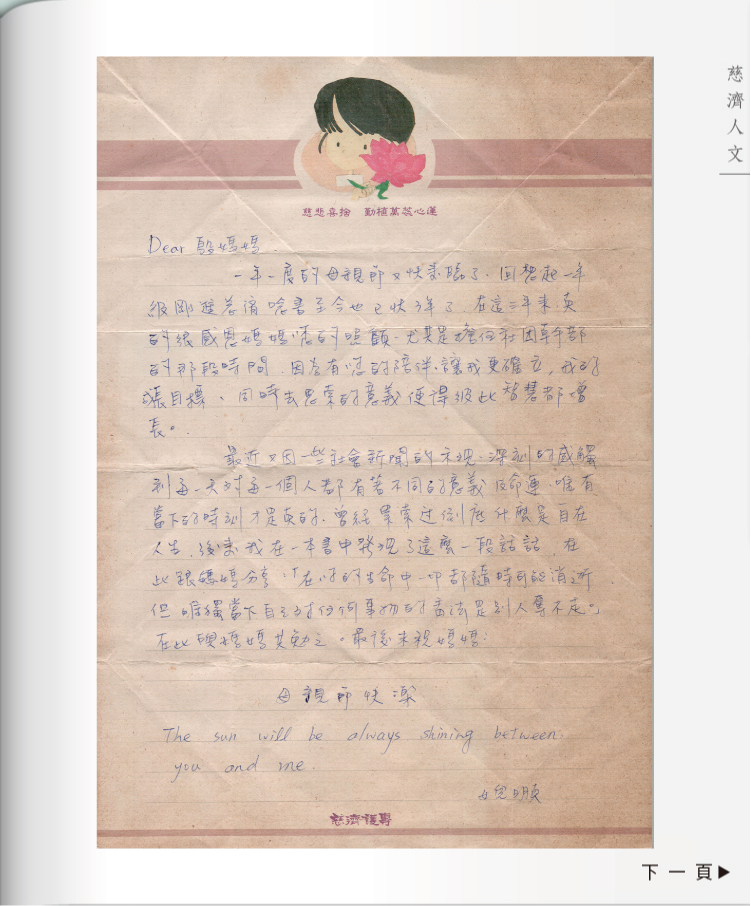 慈濟人文
慈悲喜捨 勤植萬蕊心蓮
Dear 殷媽媽
一年一度的母親節又快來臨了、回想起一年
級剛進慈濟唸書至今也已快3年了、在這三年來、真
的很感恩媽媽您的照顧、尤其是擔任社團幹部
的那段時間、因為有您的陪伴、讓我更確立、我的
目標、同時去思索的意義使得彼此智慧都增
長。
最近又因一些社會新聞的、深刻的感觸
到每一天對每一個人都有著不同的意義及命運、唯有
當下的時刻才是真的、曾經思索过到底什麼是自在
人生、後來我在一本書中發現了這麼一段話、在
此跟媽媽分享:「在你的生命中一切都隨時可能消逝、
但唯獨當下自己對任何事物的是別人奪不走」、
在此與媽媽共勉之。最後來祝媽媽:
母親節快樂
The sun will be always shining between
you and me.
女兒明貞
慈濟護專
下一頁▶